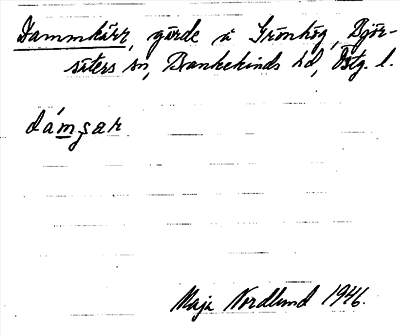 Dammkärr, gärde å Grönhög, Björ-
säters sn, Bankekinds hd, Östg. l.
dám̲çar
Maja Nordlund 1946.